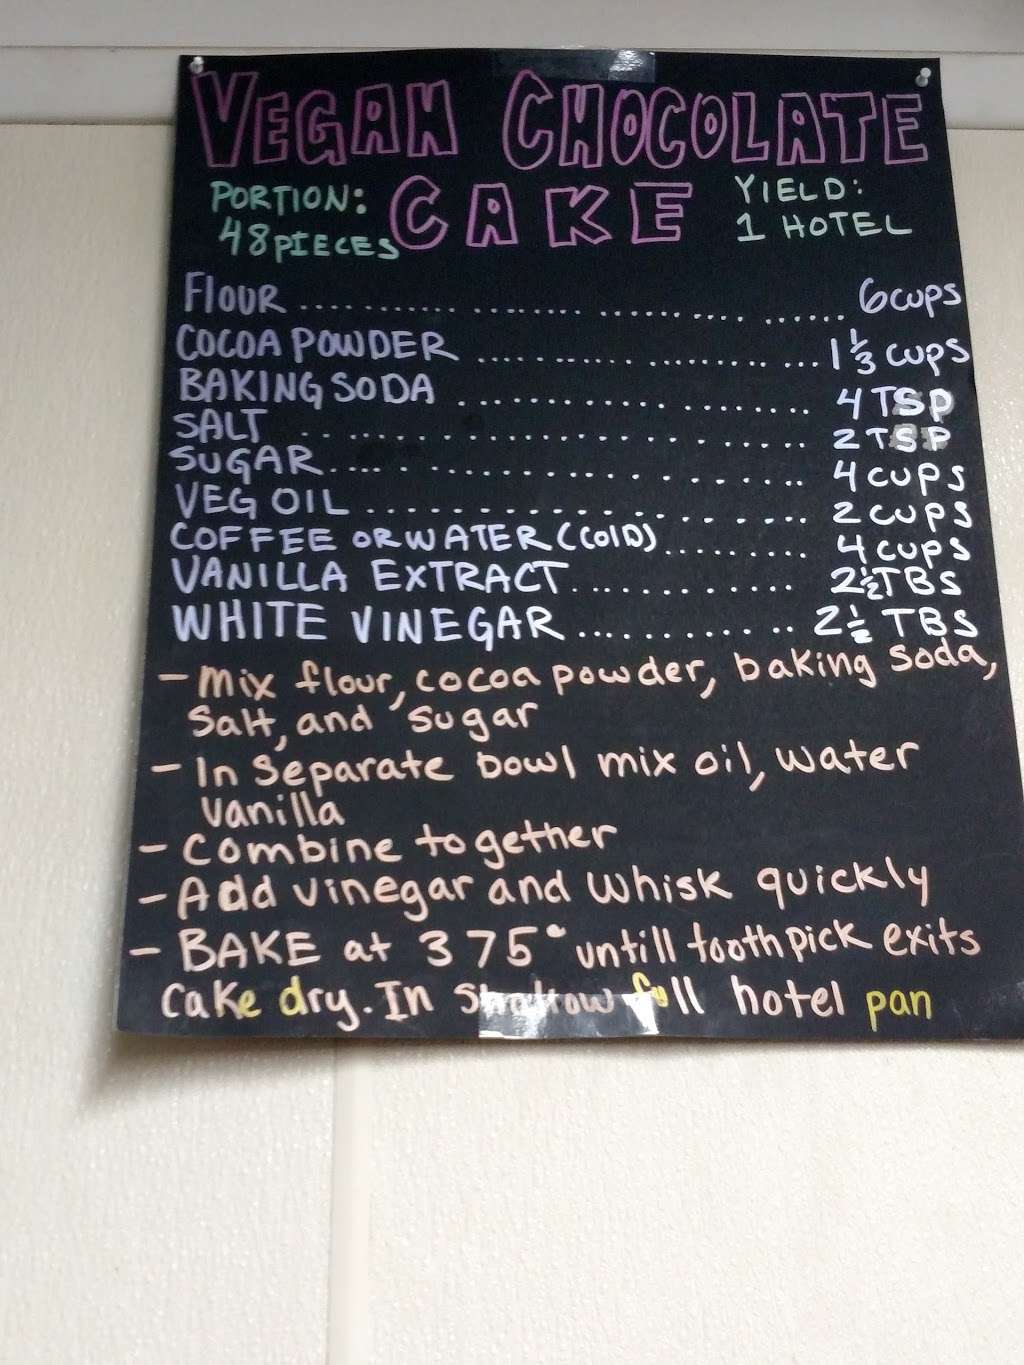 VEGAN CHOCOLATE
CAKE
PORTION:
48 PIECES
YIELD:
1 HOTEL
FLOUR .................... 6 cups
COCOA POWDER .................... 1 1/3 cups
BAKING SODA .................... 4 TSP
SALT .................... 2 TSP
SUGAR .................... 4 cups
VEG OIL .................... 2 cups
COFFEE OR WATER (COLD) .......... 4 cups
VANILLA EXTRACT ............ 2 1/2 TBS
WHITE VINEGAR ............ 2 1/2 TBS
- Mix flour, cocoa powder, baking soda,
salt, and sugar
- In Separate bowl mix oil, water
vanilla
- Combine together
- Add vinegar and whisk quickly
- BAKE at 375° untill toothpick exits
cake dry. In shallow full hotel pan